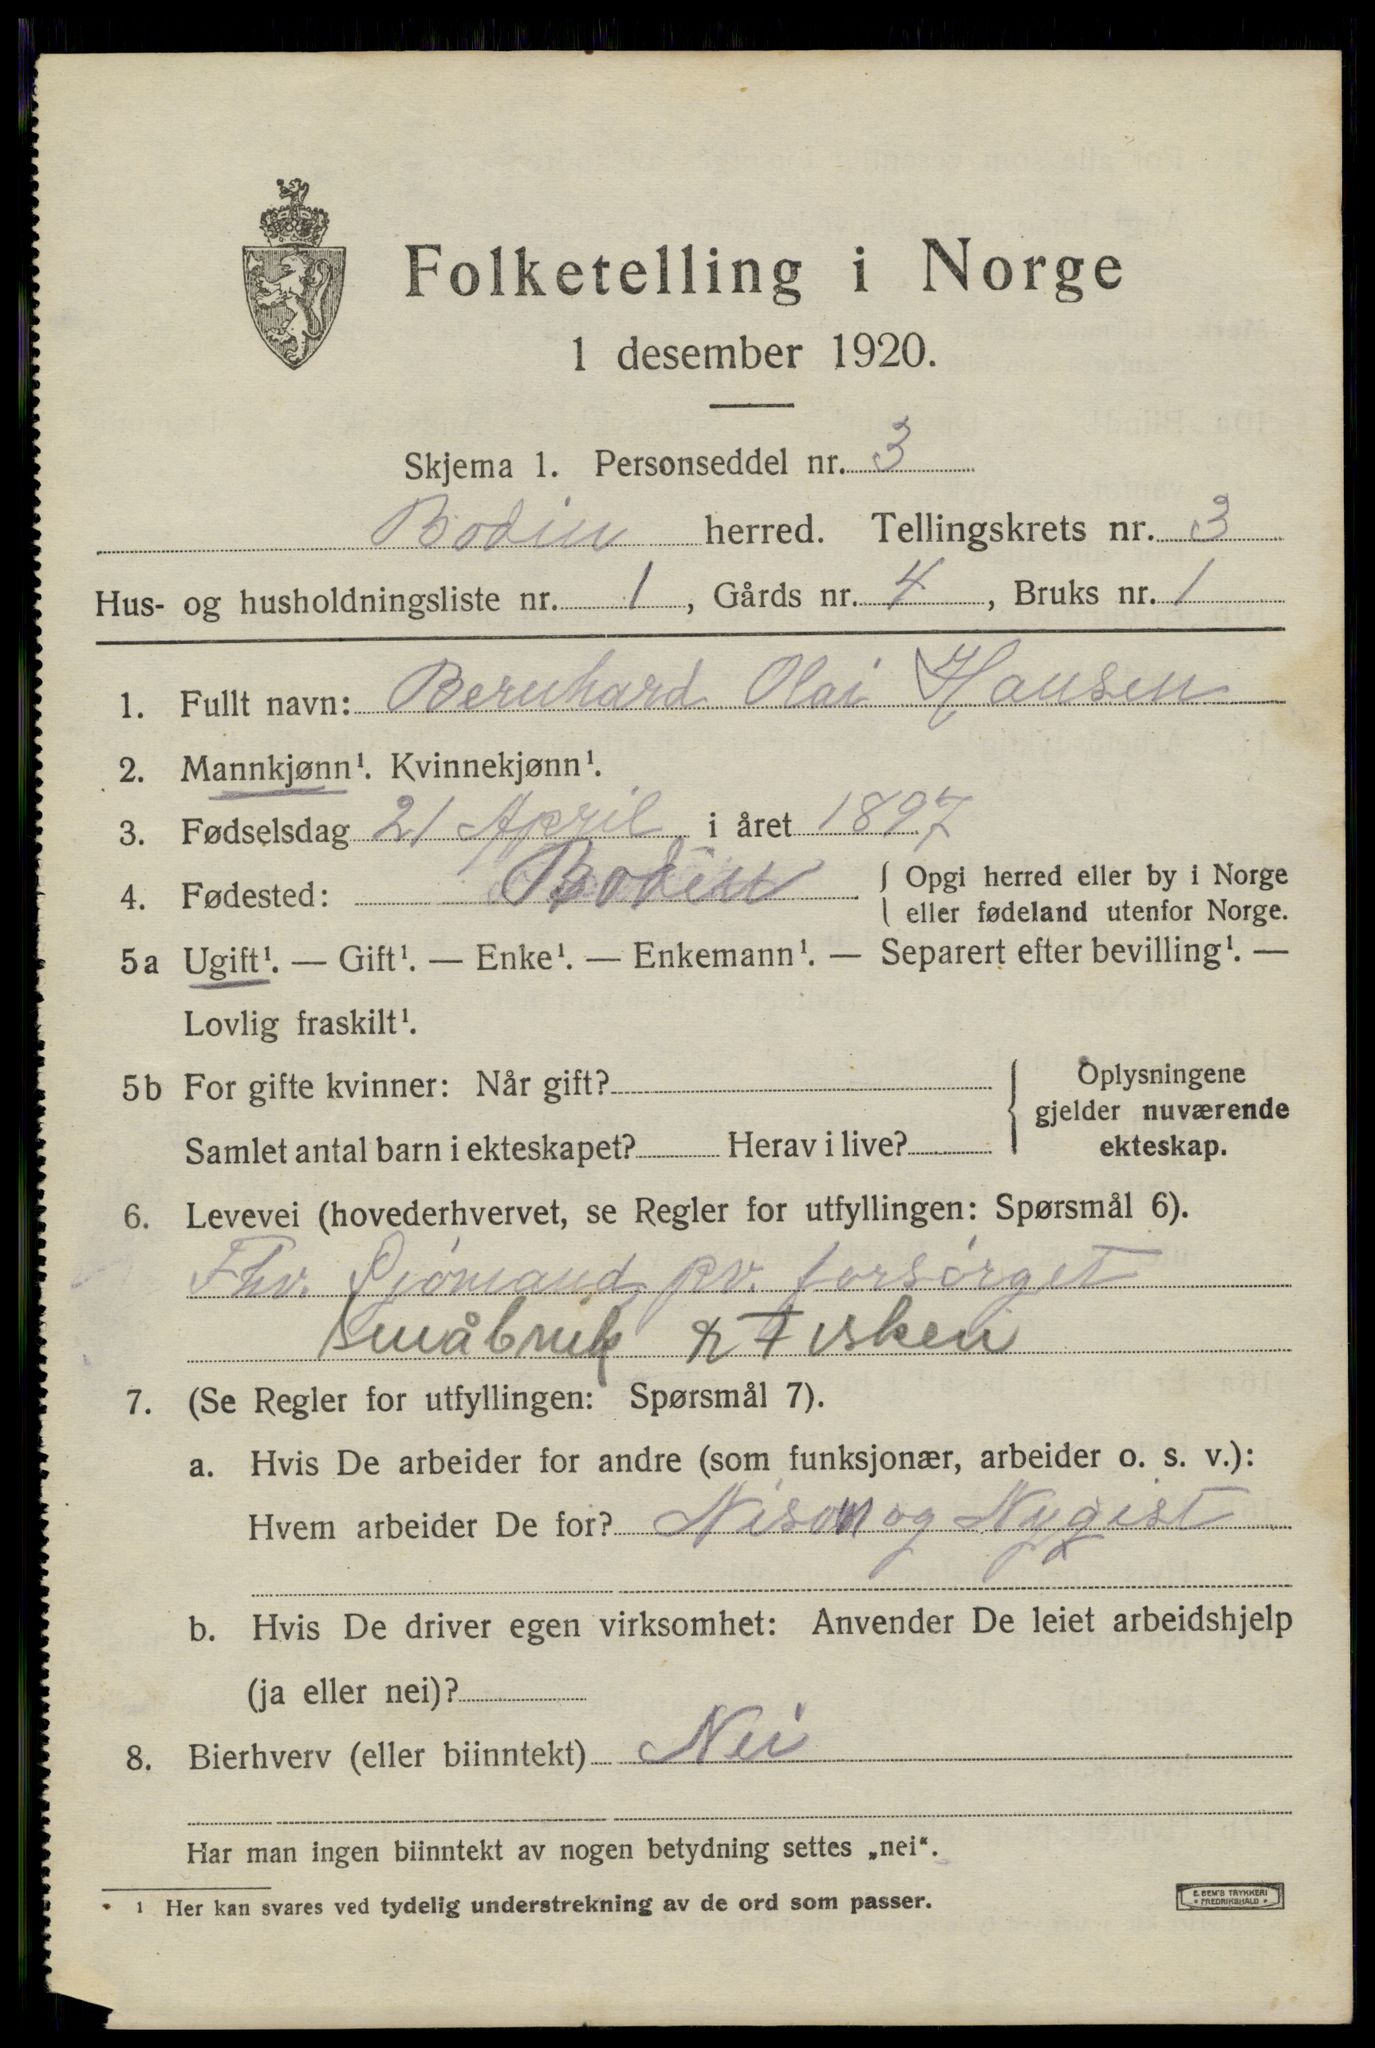 Folketelling i Norge
1 desember 1920.
Skjema 1. Personseddel nr. 3
Bodin herred. Tellingskrets nr. 3
Hus- og husholdningsliste nr. 1, Gårds nr. 4, Bruks nr. 1
1. Fullt navn: Bernhard Olai Hansen
2. Mannkjønn¹. Kvinnekjønn¹.
3. Fødselsdag 21 April i året 1897
4. Fødested: Bodin { Opgi herred eller by i Norge
eller fødeland utenfor Norge.
5a Ugift¹. — Gift¹. — Enke¹. — Enkemann¹. — Separert efter bevilling¹. —
Lovlig fraskilt¹.
5b For gifte kvinner: Når gift? { Oplysningene
gjelder nuværende
Samlet antal barn i ekteskapet? Herav i live? ekteskap.
6. Levevei (hovederhvervet, se Regler for utfyllingen: Spørsmål 6).
Fhv. Sjömand, pv. forsörget
småbruk & Fisken
7. (Se Regler for utfyllingen: Spørsmål 7).
a. Hvis De arbeider for andre (som funksjonær, arbeider o. s. v.):
Hvem arbeider De for? og
b. Hvis De driver egen virksomhet: Anvender De leiet arbeidshjelp
(ja eller nei)?
8. Bierhverv (eller biinntekt) Nei
Har man ingen biinntekt av nogen betydning settes „nei“.
¹ Her kan svares ved tydelig understrekning av de ord som passer.
E. SEM'S TRYKKERI
* FREDRIKSHALD *